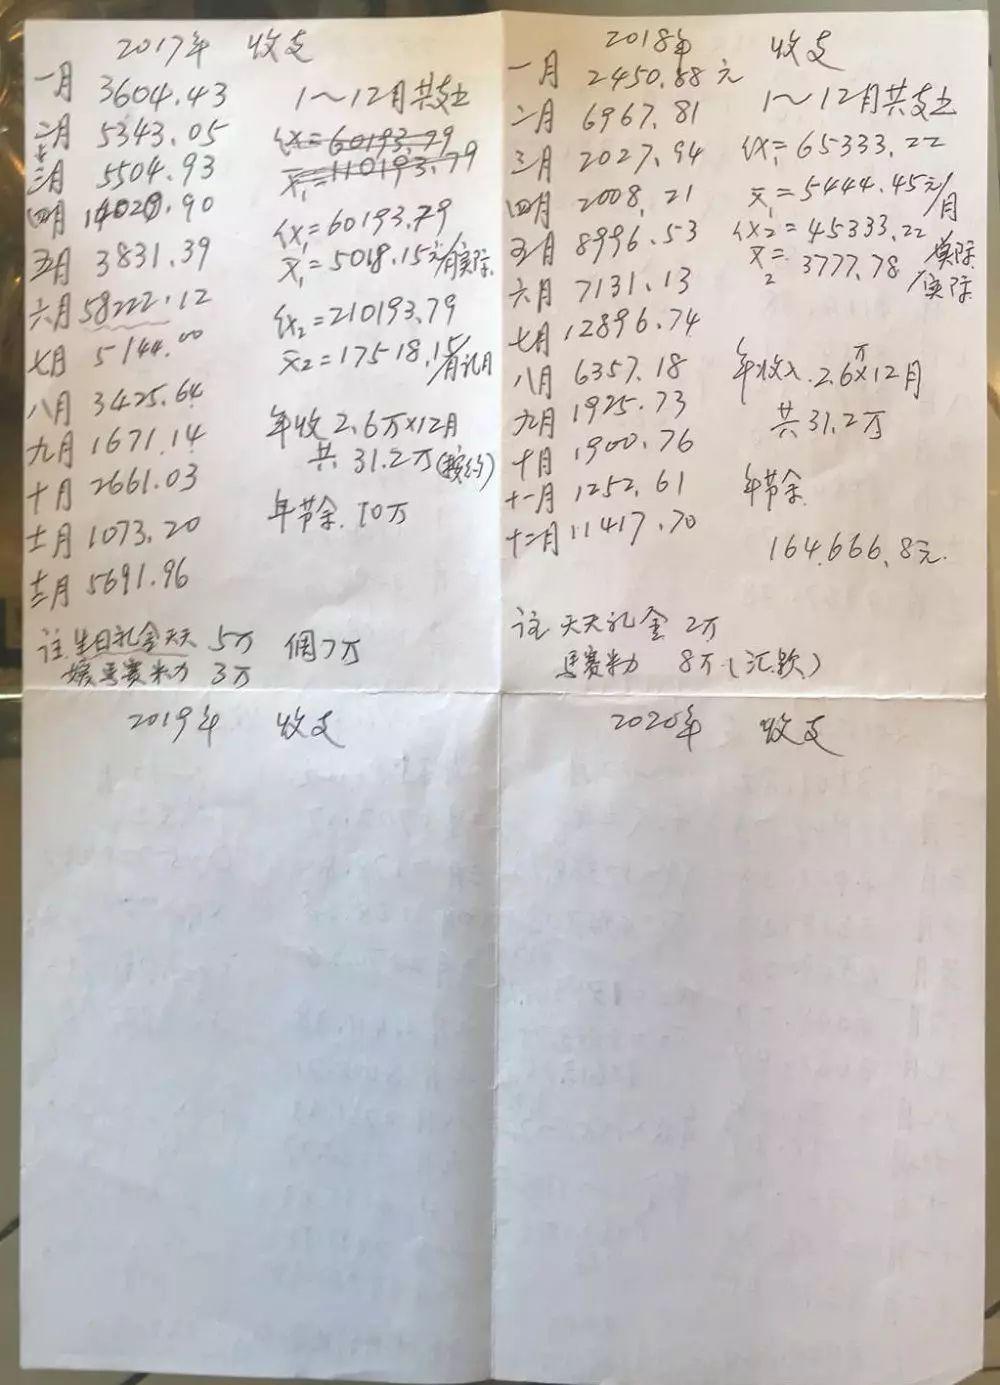 2017年 收支
一月 3604.43
二月 5343.05
三月 5504.93
四月
五月 3831.39
六月 58222.12
七月 5144.00
八月 3425.64
九月 1671.14
十月 2661.03
十一月 1073.20
十二月 5691.96
1～12月共支出
x₁=60193.79
x̄₁=110193.79
x₁=60193.79
x̄₁=5018.15元/月实际
x₂=210193.79
x̄₂=17518.15/月
年收2.6万×12月
共31.2万
年节余.10万
注.生日礼金天天 5万
马赛米力 3万
2018年 收支
一月 2450.88元
二月 6967.81
三月 2027.94
四月 2008.21
五月 8996.53
六月 7131.13
七月 12896.74
八月 6357.18
九月 1925.73
十月 1900.76
十一月 1252.61
十二月 11417.70
1～12月共支出
x₁=65333.22
x̄₁=5444.45元/月
x₂=45333.22 实际
x̄₂= 3777.78/实际
年收入.2.6万×12月
共31.2万
年节余
164.666.8元.
注 天天礼金 2万
马赛米力 8万(汇款)
2019年 收支
2020年 收支